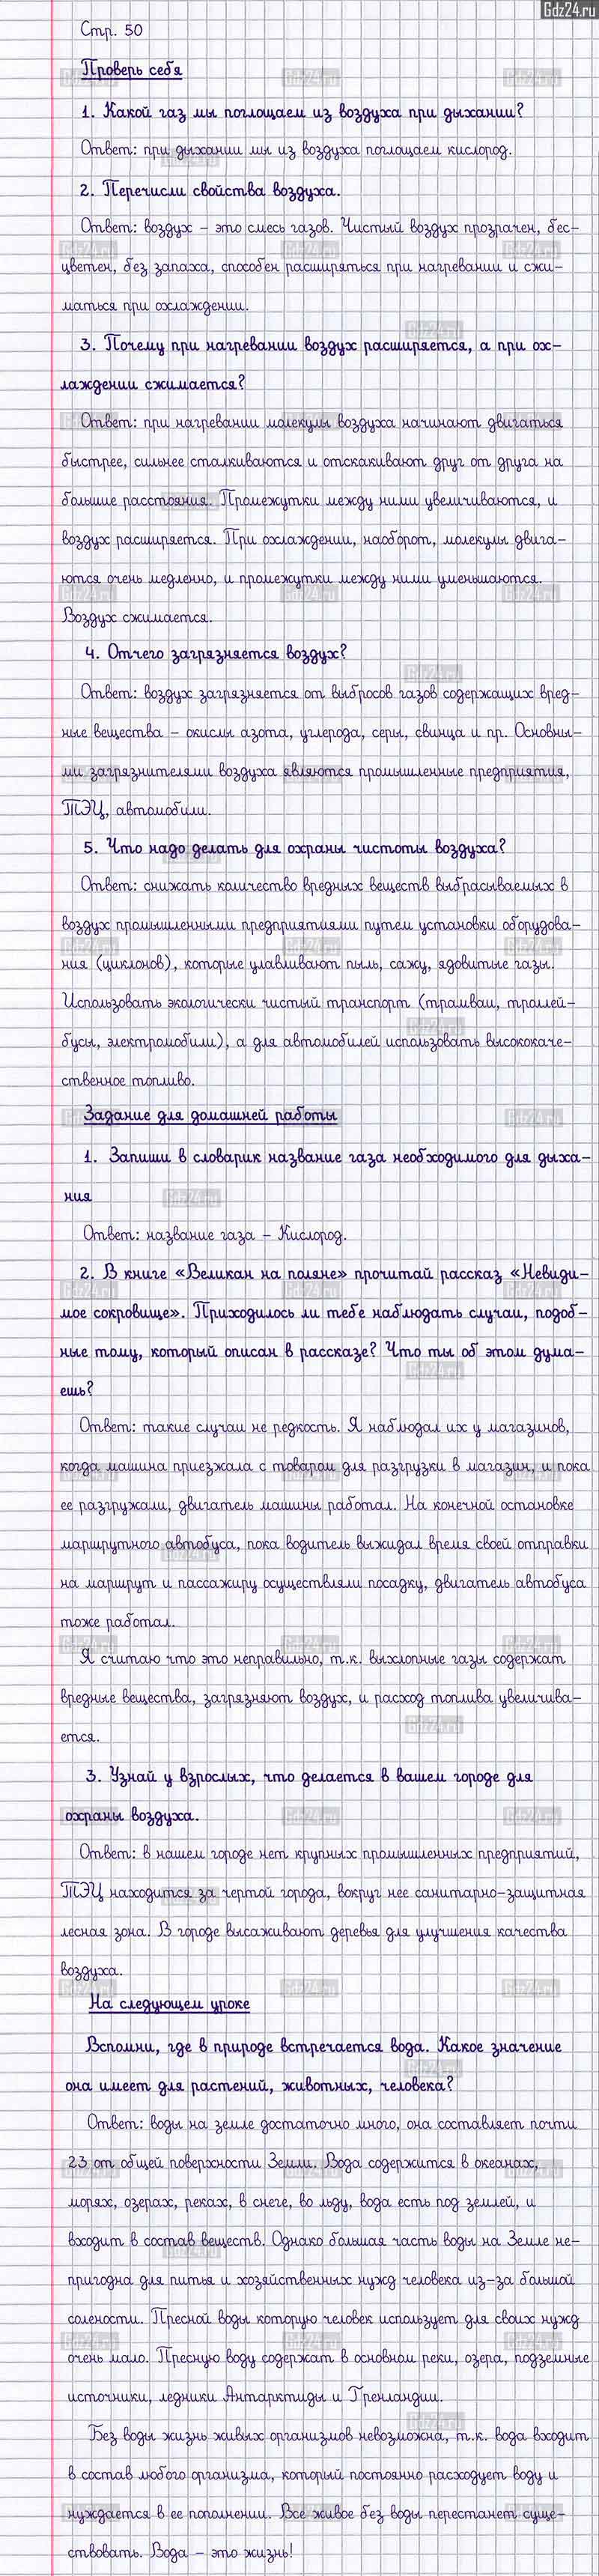 Gdz24.ru
Стр. 50
Проверь себя
1. Какой газ мы поглощаем из воздуха при дыхании?
Ответ: при дыхании мы из воздуха поглощаем кислород.
2. Перечисли свойства воздуха.
Ответ: воздух – это смесь газов. Чистый воздух прозрачен, бес-
цветен, без запаха, способен расширяться при нагревании и сжи-
маться при охлаждении.
3. Почему при нагревании воздух расширяется, а при ох-
лаждении сжимается?
Ответ: при нагревании молекулы воздуха начинают двигаться
быстрее, сильнее сталкиваются и отскакивают друг от друга на
большие расстояния. Промежутки между ними увеличиваются, и
воздух расширяется. При охлаждении, наоборот, молекулы двига-
ются очень медленно, и промежутки между ними уменьшаются.
Воздух сжимается.
4. Отчего загрязняется воздух?
Ответ: воздух загрязняется от выбросов газов содержащих вред-
ные вещества – окислы азота, углерода, серы, свинца и пр. Основны-
ми загрязнителями воздуха являются промышленные предприятия,
ТЭЦ, автомобили.
5. Что надо делать для охраны чистоты воздуха?
Ответ: снижать количество вредных веществ выбрасываемых в
воздух промышленными предприятиями путем установки оборудова-
ния (циклонов), которые улавливают пыль, сажу, ядовитые газы.
Использовать экологически чистый транспорт (трамваи, троллей-
бусы, электромобили), а для автомобилей использовать высококаче-
ственное топливо.
Задание для домашней работы
1. Запиши в словарик название газа необходимого для дыха-
ния
Ответ: название газа – Кислород.
2. В книге «Великан на поляне» прочитай рассказ «Невиди-
мое сокровище». Приходилось ли тебе наблюдать случаи, подоб-
ные тому, который описан в рассказе? Что ты об этом дума-
ешь?
Ответ: такие случаи не редкость. Я наблюдал их у магазинов,
когда машина приезжала с товаром для разгрузки в магазин, и пока
ее разгружали, двигатель машины работал. На конечной остановке
маршрутного автобуса, пока водитель выжидал время своей отправки
на маршрут и пассажиру осуществляли посадку, двигатель автобуса
тоже работал.
Я считаю что это неправильно, т.к. выхлопные газы содержат
вредные вещества, загрязняют воздух, и расход топлива увеличива-
ется.
3. Узнай у взрослых, что делается в вашем городе для
охраны воздуха.
Ответ: в нашем городе нет крупных промышленных предприятий,
ТЭЦ находится за чертой города, вокруг нее санитарно-защитная
лесная зона. В городе высаживают деревья для улучшения качества
воздуха.
На следующем уроке
Вспомни, где в природе встречается вода. Какое значение
она имеет для растений, животных, человека?
Ответ: воды на земле достаточно много, она составляет почти
23 от общей поверхности Земли. Вода содержится в океанах,
морях, озерах, реках, в снеге, во льду, вода есть под землей, и
входит в состав веществ. Однако большая часть воды на Земле не-
пригодна для питья и хозяйственных нужд человека из-за большой
солености. Пресной воды которую человек использует для своих нужд
очень мало. Пресную воду содержат в основном реки, озера, подземные
источники, ледники Антарктиды и Гренландии.
Без воды жизнь живых организмов невозможна, т.к. вода входит
в состав любого организма, который постоянно расходует воду и
нуждается в ее пополнении. Все живое без воды перестанет суще-
ствовать. Вода – это жизнь!